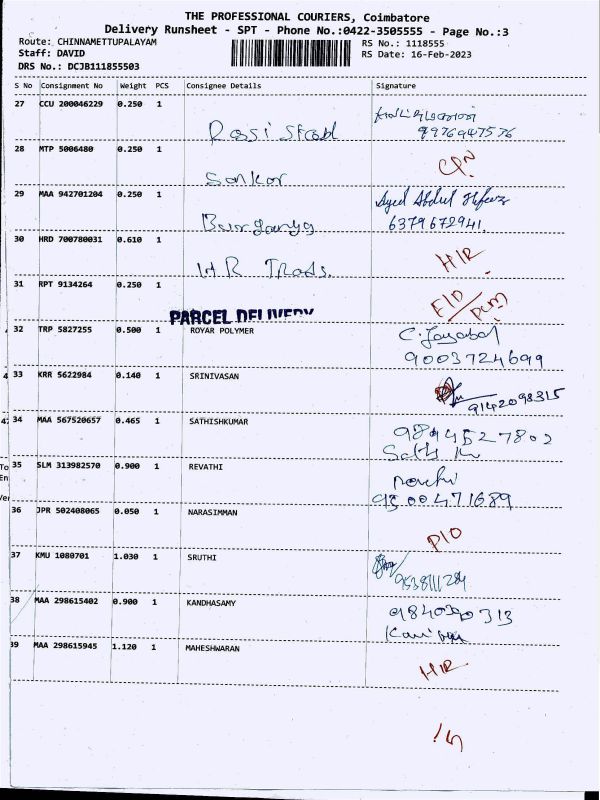 THE PROFESSIONAL COURIERS, Coimbatore
Delivery Runsheet - SPT - Phone No.:0422-3505555 - Page No.:3
Route: CHINNAMETTUPALAYAM
RS No.: 1118555
Staff: DAVID
RS Date: 16-Feb-2023
DRS No.: DCJB111855503
S No Consignment No Weight PCS Consignee Details Signature
27 CCU 200046229 0.250 1
9976947576
28 MTP 5006480 0.250 1
Sankar
29 MAA 942701204 0.250 1 Syed Abdul
6379672941.
30 HRD 700780031 0.610 1 HIR
HR Trads.
31 RPT 9134264 0.250 1
PARCEL DELIVERY
32 TRP 5827255 0.500 1 ROYAR POLYMER C. Jayabal
9003724699
33 KRR 5622984 0.140 1 SRINIVASAN
9142098315
34 MAA 567520657 0.465 1 SATHISHKUMAR
35 SLM 313982570 0.900 1 REVATHI
9500471689
36 JPR 502408065 0.050 1 NARASIMMAN
PIO
37 KMU 1080701 1.030 1 SRUTHI
38 MAA 298615402 0.900 1 KANDHASAMY
39 MAA 298615945 1.120 1 MAHESHWARAN
HIR